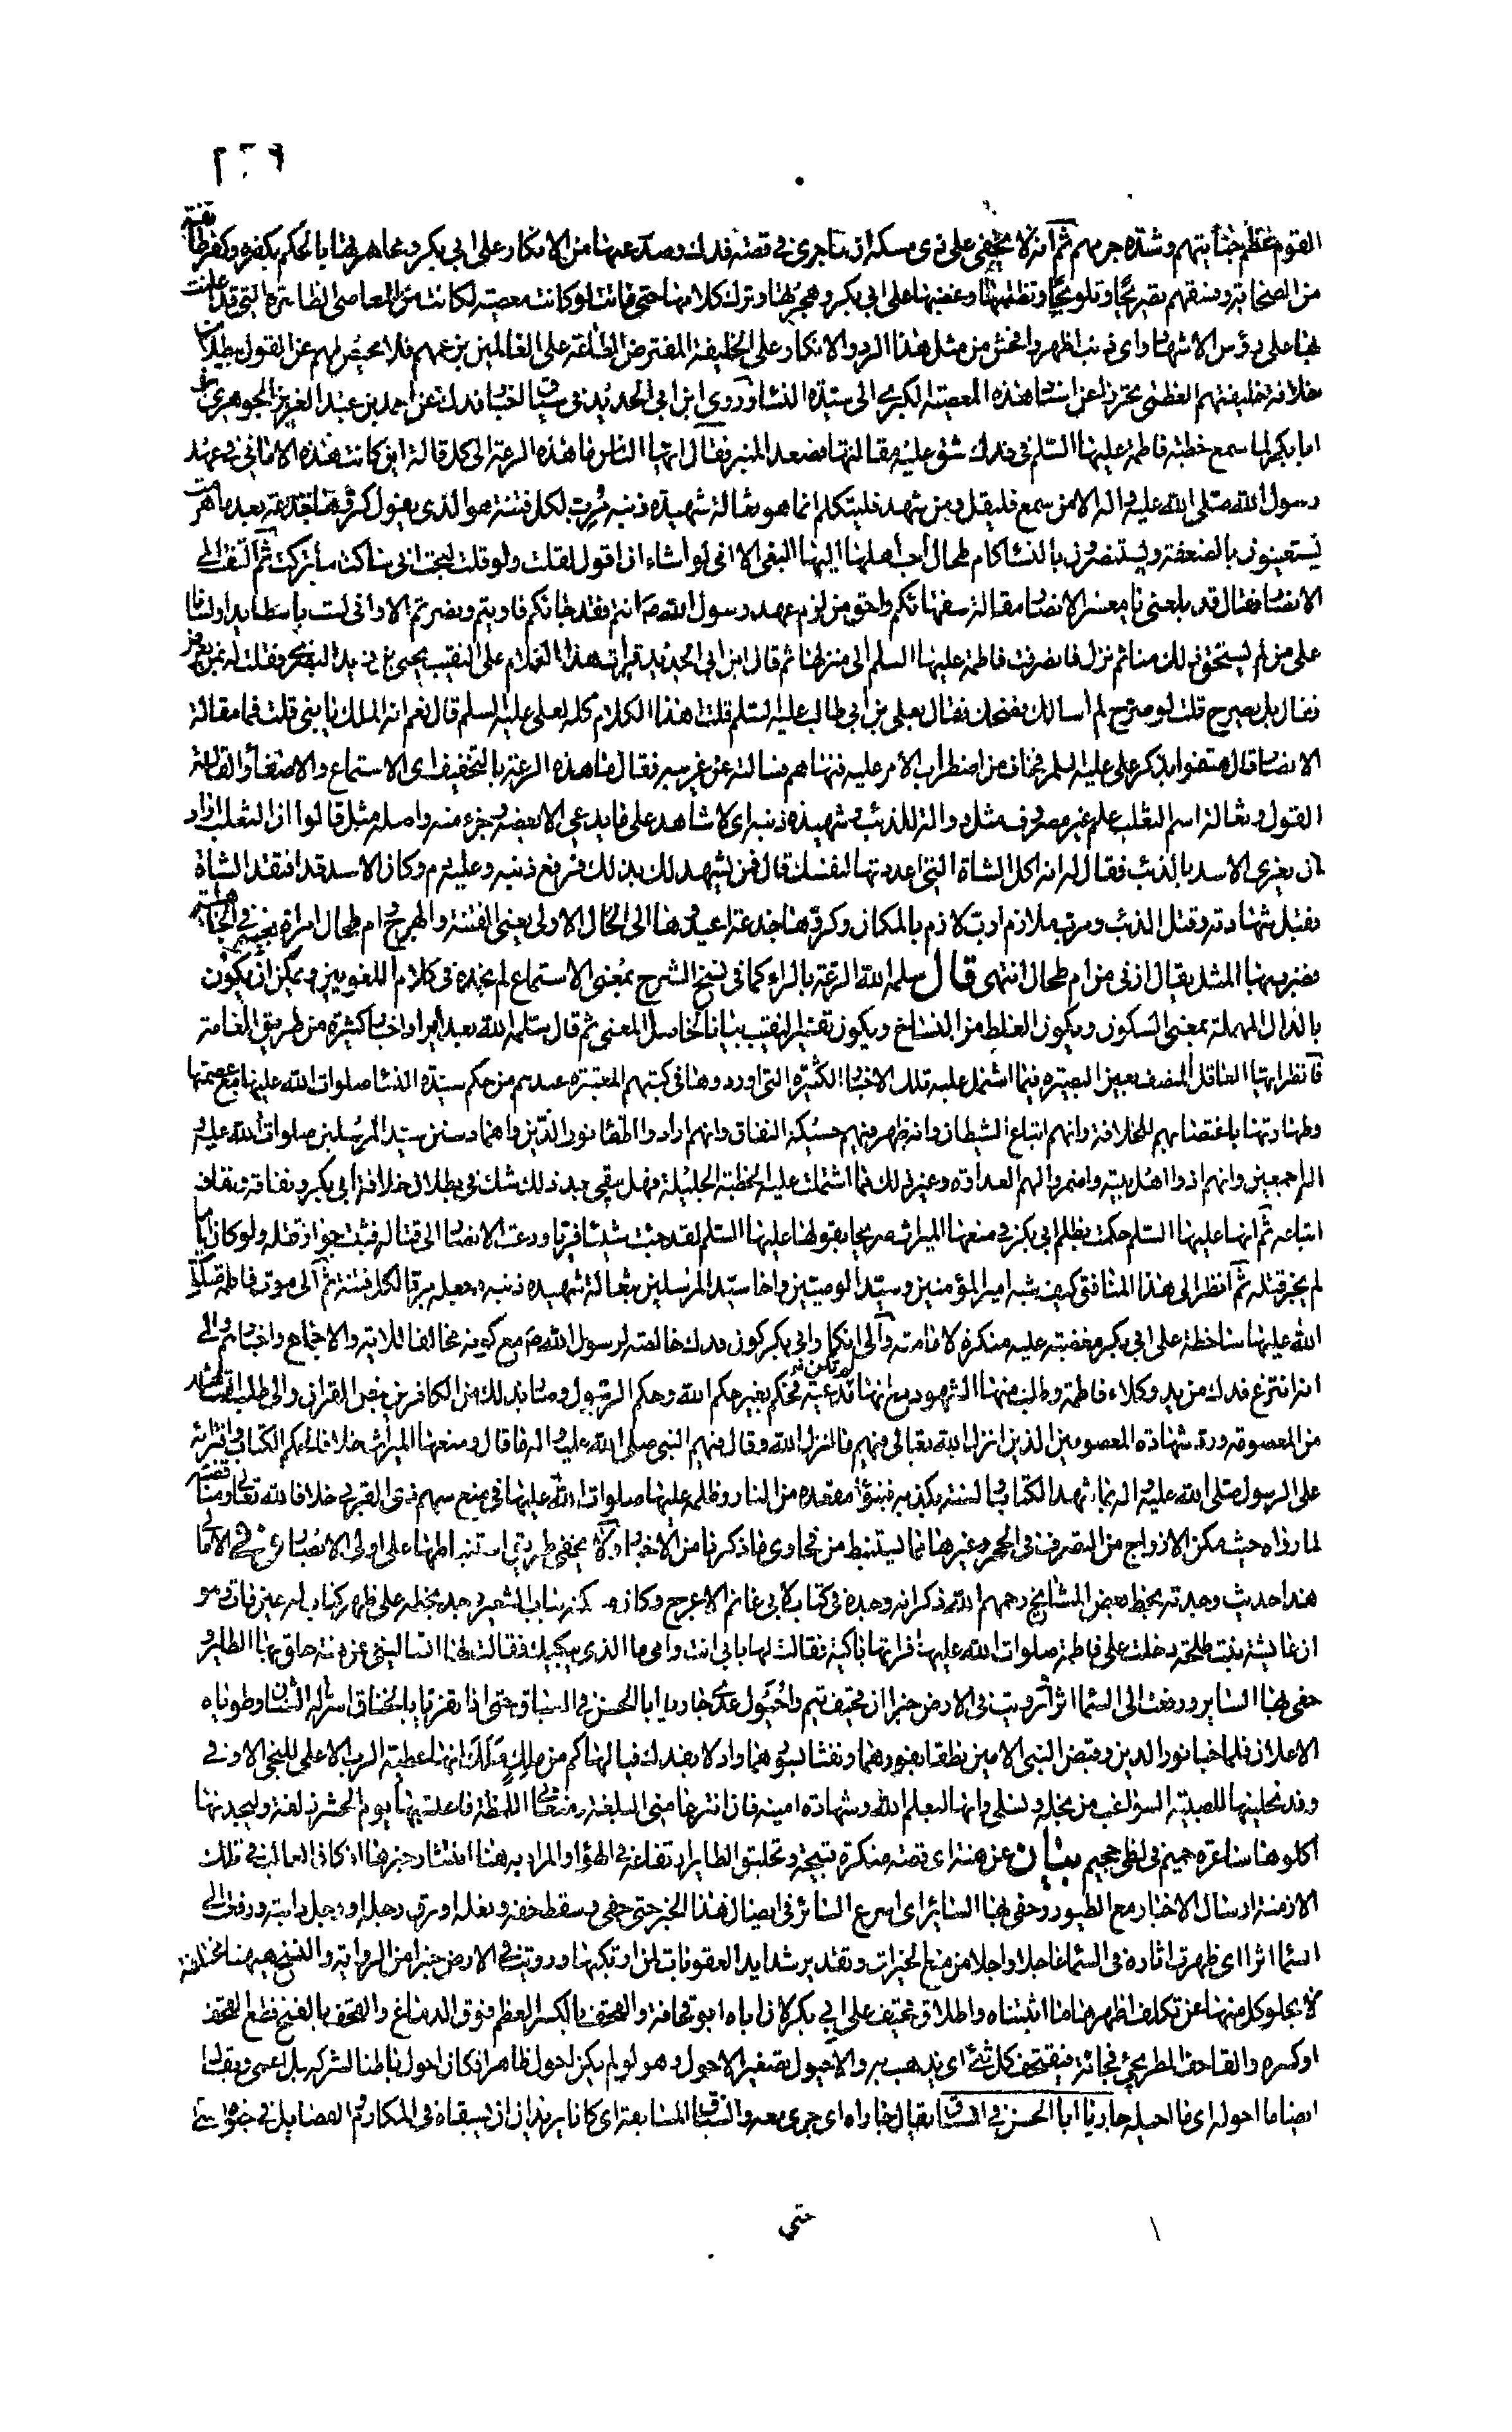 القوم عظم جنايتهم وشدة جرمهم ثم انه لا يخفى على ذى مسكة ان ما جرى فى قصة فدك وصدر عنها من الانكار على ابى بكر ومجاهرتها بالحكم بكفره وكفر طائفة
من الصحابة وفسقهم تصريحا وتلويحا وتظلمها وغضبها على ابى بكر وهجرتها وترك كلامها حتى ماتت لو كانت معصية لكانت من المعاصى الظاهرة التى قد اعلنت
بها على رؤس الاشهاد واى ذنب اظهر وافحش من مثل هذا الرد والانكار على الخليفة المفترض الطاعة على العالمين بزعمهم فلا محيص لهم عن القول ببطلان
خلافة خليفتهم العظمى تحرزا عن اسناد هذه المعصية الكبرى الى سيدة النساء وروى ابن ابى الحديد فى سياق اخبار فدك عن احمد بن عبد العزيز الجوهرى ان
ابا بكر لما سمع خطبة فاطمة عليها السلم فى فدك شق عليه مقالتها فصعد المنبر فقال ايها الناس ما هذه الرعة الى كل قالة اين كانت هذه الامانى فى عهد
رسول الله صلى الله عليه واله الا من سمع فليقل ومن شهد فليتكلم انما هو ثعالة شهيده ذنبه مرب لكل فتنة هو الذى يقول كروها جذعة بعد ما هرمت
يستعينون بالضعفة ويستنصرون بالنساء كام طحال احب اهلها اليها البغى الا انى لو اشاء ان اقول لقلت ولو قلت لبحت انى ساكت ما تركت ثم التفت الى
الانصار فقال قد بلغنى يا معشر الانصار مقالة سفهائكم واحق من لزم عهد رسول الله ص انتم فقد جائكم فاويتم ونصرتم الا وانى لست باسطا يدا ولسانا
على من لم يستحق ذلك منا ثم نزل فانصرفت فاطمة عليها السلم الى منزلها ثم قال ابن ابى الحديد قرات هذا الكلام على النقيب يحيى بن زيد البصرى وقلت له بمن يعرض
فقال بل يصرح قلت لو صرح لم اسالك فضحك فقال بعلى بن ابى طالب عليه السلم قلت اهذا الكلام كله لعلى عليه السلم قال نعم انه الملك يا بنى قلت فما مقالة
الانصار قال هتفوا بذكر على عليه السلم فخاف من اضطراب الأمر عليه فنهاهم فسالته عن غريبه فقال ما هذه الرعة بالتخفيف اى الاستماع والاصغاء والقالة
القول وثعالة اسم الثعلب علم غير مصروف مثل ذوالة للذئب وشهيده ذنبه اى لا شاهد على ما يدعى الا بعضه وجزء منه واصله مثل قالوا ان الثعلب اراد
ان يغرى الاسد بالذئب فقال له انه اكل الشاة التى اعددتها لنفسك قال فمن يشهد لك بذلك فرفع ذنبه وعليه دم وكان الاسد قد افتقد الشاة
فقبل شهادته وقتل الذئب ومرب ملازم ارب لازم بالمكان وكروها جذعة اعيدوها الى الحال الاولى يعنى الفتنة والهرج وام طحال امراة بغى فى الجاهلية
فضرب بها المثل يقال ازنى من ام طحال انتهى قال سلمه الله الرعة بالراء كما فى نسخ الشرح بمعنى الاستماع لم نجده فى كلام اللغويين ويمكن ان يكون
بالدال المهملة بمعنى السكون ويكون الغلط من النساخ ويكون تفسير النقيب بيانا لحاصل المعنى ثم قال سلمه الله بعد ايراد اخبار كثيرة من طريق العامة
فانظر ايها العاقل المنصف بعين البصيرة فيما اشتمل عليه تلك الاخبار الكثيرة التى اوردوها فى كتبهم المعتبرة عندهم من حكم سيدة النساء صلوات الله عليها مع عصمتها
وطهارتها باغتصابهم للخلافة وانهم اتباع الشيطان وانه ظهر فيهم حسيكة النفاق وانهم ارادوا اطفاء نور الدين واهماد سنن سيد المرسلين صلوات الله عليه و
اله اجمعين وانهم اذوا اهل بيته واضمروا لهم العداوة وغير ذلك مما اشتملت عليه الخطبة الجليلة فهل يبقى بعد ذلك شك فى بطلان خلافة ابى بكر ونفاقه ونفاق
اتباعه ثم انها عليها السلم حكمت بظلم ابى بكر فى منعها الميراث صريحا بقولها عليها السلم لقد جئت شيئا فريا ودعت الانصار الى قتاله فثبت جواز قتله ولو كان اماما
لم يجز قتله ثم انظر الى هذا المنافق كيف شبه امير المؤمنين وسيد الوصيين واخا سيد المرسلين بثعالة شهيده ذنبه وجعله مربا لكل فتنة ثم الى موت فاطمة صلوات
الله عليها ساخطة على ابى بكر مغضبة عليه منكرة لامامته والى انكار ابى بكر كون فدك خالصة لرسول الله ص مع كونه مخالفا للاية والاجماع واخبارهم والى
انه انتزع فدك من يد وكلاء فاطمة وطلب منها الشهود مع انها لم تكن مدعية فحكم بغير حكم الله وحكم الرسول وصار بذلك من الكافرين بنص القران والى طلب الشاهد
من المعصومة ورد شهادة المعصومين الذين انزل الله تعالى فيهم ما انزل الله وقال فيهم النبى صلى الله عليه واله ما قال ومنعها الميراث خلافا لحكم الكتاب وافترائه
على الرسول صلى الله عليه واله بما شهد الكتاب والسنة بكذبه فتبوأ مقعده من النار وظلمه عليها صلوات الله عليها فى منع سهم ذى القربى خلافا لله تعالى ومناقضته
لما رواه حيث مكن الازواج من التصرف فى الحجر وغيرها مما يستنبط من فحاوى ما ذكرنا من الاخبار ولا يخفى طريق استنباطها على اولى الابصار
هذا حديث وجدته بخط بعض المشايخ رحمهم الله ذكر انه وجده فى كتاب لابى غانم الاعرج وكان مسكنه بباب الشعير وجد بخطه على ظهر كتاب له حين مات وهو
ان عايشة بنت طلحة دخلت على فاطمة صلوات الله عليها فراتها باكية فقالت لها بابى انت وامى ما الذى يبكيك فقالت لها اسائلتى عن هنة حلق بها الطاير و
حفى بها الساير ورفعت الى السماء اثرا ورزيت فى الارض خبرا ان قحيف تيم واحيول عدى جاريا ابا الحسن فى السباق حتى اذا تفريا بالخناق اسرا له الشنان وطوياه
الاعلان فلما خبا نور الدين وقبض النبى الامين نطقا بفورهما ونفثا بسورهما وادلا بفدك فيا لها كم من ملك ملك انها عطية الرب الاعلى للنجى الاوفى
وقد نحلنيها للصبية السواغب من نجله ونسلى وانها ليعلم الله وشهادة امينه فان انتزعا منى البلغة ومنعانى اللمظة فاحتسبها يوم الحشر زلفة وليجدنها
اكلوها ساعرة حميم فى لظى جحيم بيان عن هنة اى قصة منكرة قبيحة وتحليق الطاير ارتفاعه فى الهواء والمراد به هنا انتشار خبرها اذ كان الغالب فى تلك
الازمنة ارسال الاخبار مع الطيور وحفى بها السائر اى اسرع السائر فى ايصال هذا الخبر حتى حفى وسقط خفه ونعله او رق رجله او رجل دابته ورفعت الى
السماء اثرا اى ظهرت اثاره فى السماء عاجلا واجلا من منع الخيرات وتقدير شدايد العقوبات لمن ارتكبها ورويت فى الارض خبرا من الرواية والنسخ هيهنا مختلفة
لا يخلو كل منها عن تكلف اظهرها ما اثبتناه واطلاق قحيف على ابى بكر لان اباه ابو قحافة والقحف بالكسر العظم فوق الدماغ والقحف بالفتح قطع القحف
او كسره والقاحف المطر يجئ فجائة فيقتحف كل شئ اى يذهب به والاحيول تصغير الاحول وهو لو لم يكن احول ظاهرا فكان احول باطنا لشركه بل اعمى ويقال
ايضا ما احوله اى ما احيله جاريا ابا الحسن فى السباق يقال جاراه اى جرى معه والسباق المسابقة اى كانا يريدان ان يسبقاه فى المكارم والفضايل فى حيوة النبى
حتى